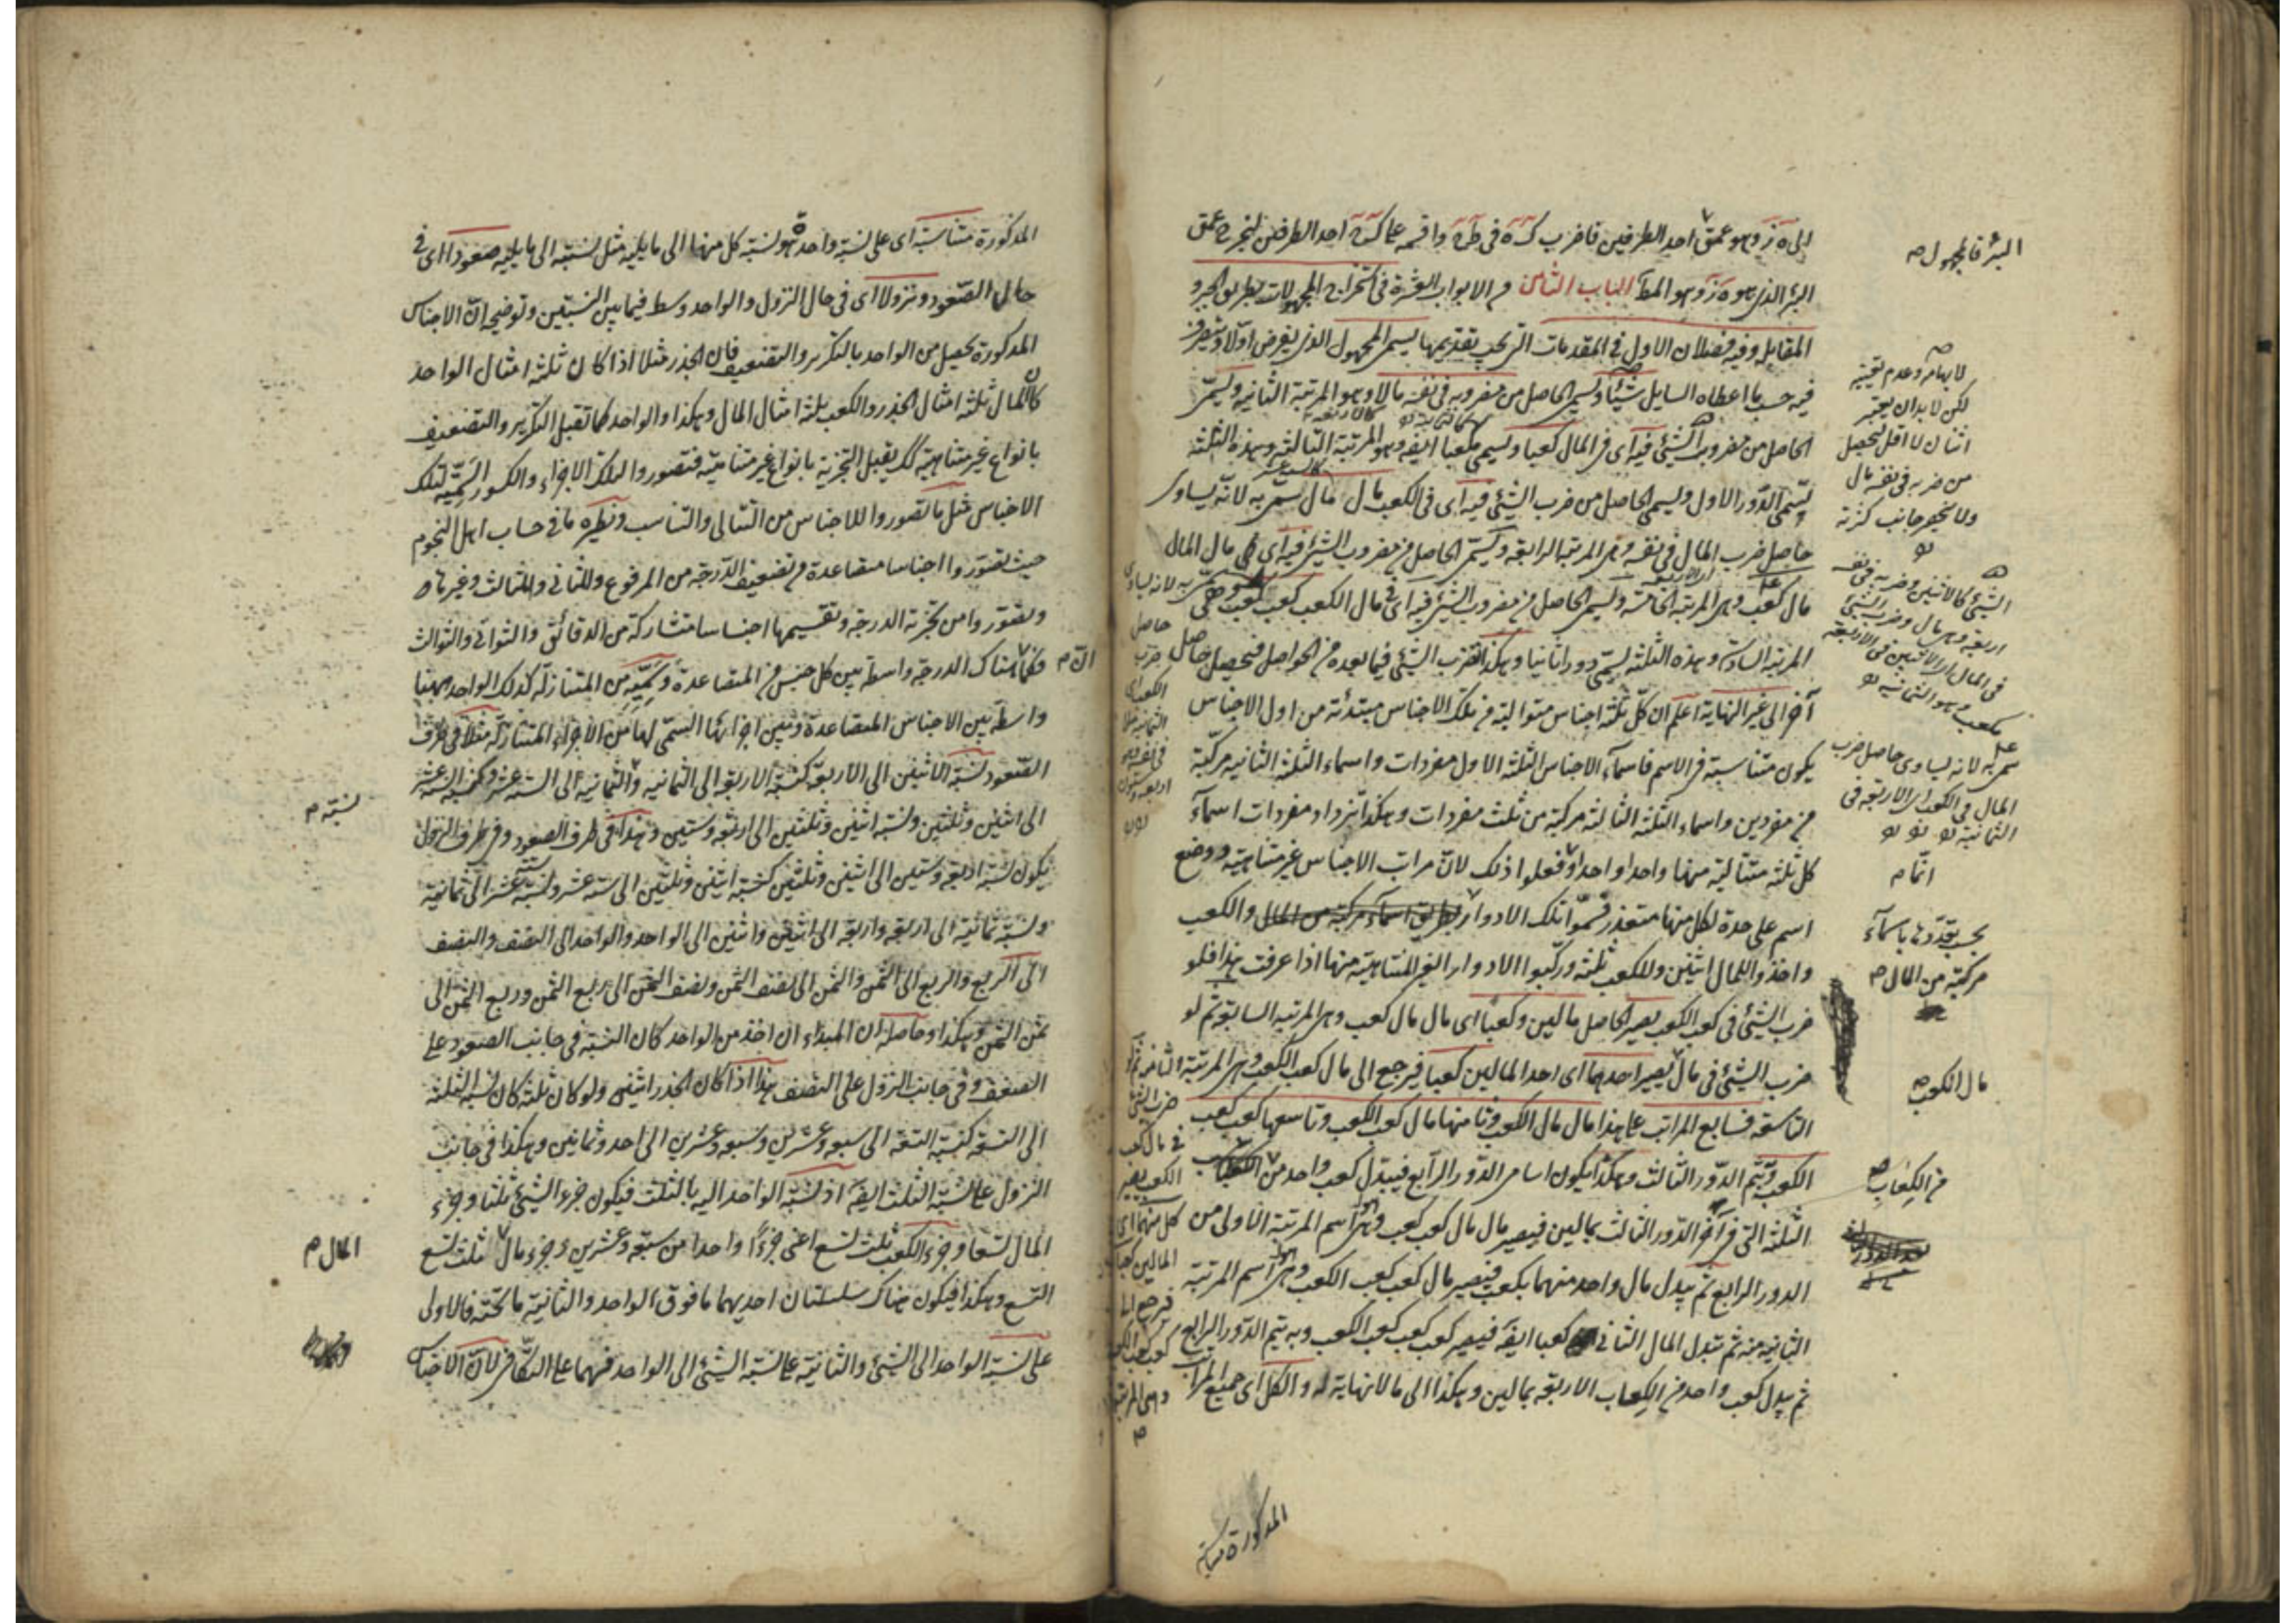 الى ه ز وهو عمق احد الطرفين فاضرب في واقسمه على احد الطرفين ليخرج عمق
البئر الذي هو ه ز وهو المط الباب الثامن من الابواب العشرة في استخراج المجهولات بطريق الجبر و
المقابلة وفيه فصلان الاول في المقدمات التي يجب تقديمها يسمى المجهول الذي يفرض اولا ويتصرف
فيه حسب ما اعطاه السايل شيئا ويسمى الحاصل من ضربه في نفسه مالا وهو المرتبة الثانية ويسمى
الحاصل من ضرب الشيئ فيه اى في المال كعبا ويسمى مكعبا ايضه وهو المرتبة الثالثة وهذه الثلثة
يسمى الدور الاول ويسمى الحاصل من ضرب الشيئ فيه اى في الكعب مال مال سمى به لانه يساوى
حاصل ضرب المال في نفسه وهى المرتبة الرابعة ويسمى الحاصل من ضرب الشيئ فيه اى في مال المال
مال كعب وهى المرتبة الخامسة ويسمى الحاصل من ضرب الشيئ فيه اى في مال الكعب كعب كعب وهى
المرتبة السادسة وهذه الثلثة يسمى دورا ثانيا وهكذا تضرب الشيئ فيما بعده من الحواصل فيحصل حاصل
آخر الى غير النهاية اعلم ان كل ثلثة اجناس متوالية من تلك الاجناس مبتدئة من اول الاجناس
يكون متناسبة في الاسم فاسماء الاجناس الثلثة الاول مفردات واسماء الثلثة الثانية مركبة
من مفردين واسماء الثلثة الثالثة مركبة من ثلث مفردات وهكذا يزداد مفردات اسماء
كل ثلثة متتالية منها واحدا واحدا وفعلوا ذلك لان مراتب الاجناس غير متناهية ووضع
اسم على حدة لكل منها متعذر فسموا تلك الادوار بطريق اسماء مركبة من المال والكعب
واخذوا للمال اثنين وللكعب ثلثة وركبوا الادوار الغير المتناهية منها اذا عرفت هذا فلو
ضرب الشيئ في كعب الكعب يصير الحاصل مالين وكعبا اى مال مال كعب وهى المرتبة السابعة ثم لو
ضرب الشيئ في مال يصير احدهما اى احد المالين كعبا فيرجع الى مال كعب الكعب وهى المرتبة الثامنة ثم لو
التاسعة فسابع المراتب على هذا مال مال الكعب وثامنها مال كعب الكعب وتاسعها كعب كعب
الكعب ويتم الدور الثالث وهكذا يكون اسامى الدور الرابع فيبدل كعب واحد من الكعاب
الثلثة التى في آخر الدور الثالث بمالين فيصير مال مال كعب كعب وهو اسم المرتبة الاولى من
الدور الرابع ثم يبدل مال واحد منهما بكعب فيصير مال كعب كعب الكعب وهو اسم المرتبة
الثانية منه ثم تبدل المال الثانى كعبا ايضه فيصير كعب كعب كعب الكعب وبه يتم الدور الرابع
ثم يبدل كعب واحد من الكعاب الاربعة بمالين وهكذا الى ما لا نهاية له والكل اى جميع المراتب
المذكورة متناسبة
البئر فالمجهول ص
لابهامه وعدم تعينه
لكن لا بد ان يعتبر
اثنان لا اقل ليحصل
من ضربه في نفسه مال
الشيئ كالاثنين وضربه في نفسه
اربعة وهى مال وضرب الشيئ
في المال اى الاثنين في الاربعة
مكعب وهو الثمانية
سمى به لانه يساوى حاصل ضرب
المال في الكعب اى الاربعة في
الثمانية
بحسب تعددها باسماء
مركبة من المال ص
مال الكعب ص
من الكعاب ص
سمى به لانه يساوى
حاصل
ضرب
الكعب اى
الثمانية مثلا
في نفسه وهو
اربعة وستون
ضرب الشيئ
في مال كعب
الكعب يصير
كل منهما اى
المالين كعبا
فيرجع الى
كعب كعب الكعب
وهى المرتبة
ص
المذكورة متناسبة اى على نسبة واحدة هو نسبة كل منها الى ما يليه مثل نسبته الى ما يليه صعودا اى في
حال الصعود ونزولا اى في حال النزول والواحد وسط فيما بين النسبتين وتوضيحه ان الاجناس
المذكورة تحصيل من الواحد بالتكرير والتضعيف فان الجذر مثلا اذا كان ثلثة امثال الواحد
كان المال ثلثة امثال الجذر والكعب ثلثة امثال المال وهكذا والواحد كما تقبل التكرير والتضعيف
بانواع غير متناهية كك يقبل التجزية بانواع غير متناهية فتصوروا لتلك الاجزاء والكسور السمية لتلك
الاجناس مثل ما تصوروا للاجناس من التتالى والتناسب ونظيره ما في حساب اهل النجوم
حيث تصوروا اجناسا متصاعدة من تضعيف الدرجة من المرفوع والمثانى والمثالث وغيرها
وتصوروا من تجزئة الدرجة وتقسيمها اجناسا متشاركة من الدقائق والثوانى والثوالث
فكما ان هناك الدرجة واسطة بين كل جنس من المتصاعدة وسميه من المتنازلة كذلك الواحد ههنا
واسطة بين الاجناس المتصاعدة وبين اجزائها السمى لها من الاجزاء المتنازلة مثلا في طرف
الصعود نسبة الاثنين الى الاربعة كنسبة الاربعة الى الثمانية والثمانية الى الستة عشر وكنسبة الستة عشر
الى اثنين وثلثين ونسبة اثنين وثلثين الى اربعة وستين وهذا في طرف الصعود وفي طرف النزول
يكون نسبة اربعة وستين الى اثنين وثلثين كنسبة اثنين وثلثين الى ستة عشر ونسبة ستة عشر الى ثمانية
ونسبة ثمانية الى اربعة واربعة الى اثنين واثنين الى الواحد والواحد الى النصف والنصف
الى الربع والربع الى الثمن والثمن الى نصف الثمن ونصف الثمن الى ربع الثمن وربع الثمن الى
ثمن الثمن وهكذا وحاصله ان المبداء ان اخذ من الواحد كان النسبة في جانب الصعود على
الضعف وفي جانب النزول على النصف هذا اذا كان الجذر اثنين ولو كان ثلثة كان نسبة الثلثة
الى التسعة كنسبة التسعة الى سبعة وعشرين وسبعة وعشرين الى احد وثمانين وهكذا في جانب
النزول على نسبة الثلث ايضه اذ نسبة الواحد اليه بالثلث فيكون جزء الشيئ ثلثا وجزء
المال تسعا وجزء الكعب ثلث تسع اعنى جزءا واحدا من سبعة وعشرين وجزء مال ثلث ثلث تسع
التسع وهكذا فيكون هناك سلسلتان احديهما ما فوق الواحد والثانية ما تحته فالاولى
على نسبة الواحد الى الشيئ والثانية على نسبة الشيئ الى الواحد فهما على التكافؤ لان الاجناس
نسبته م
المال م